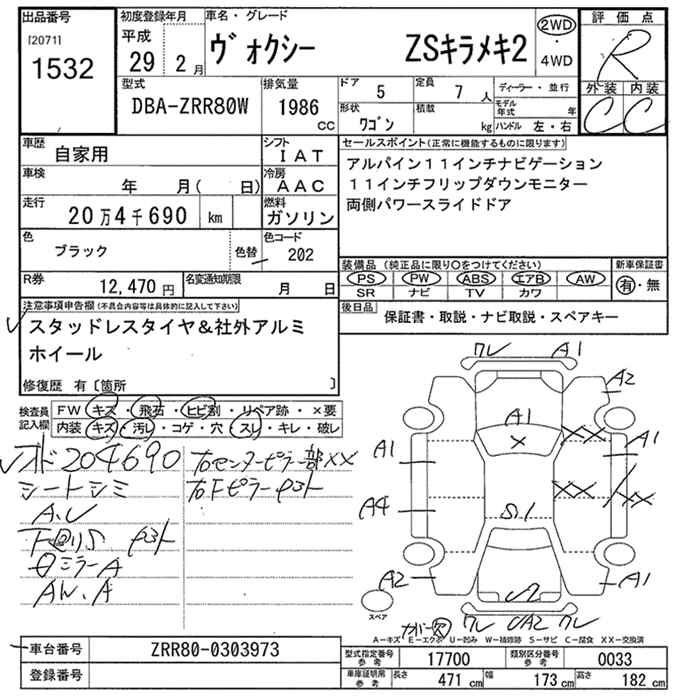 出品番号 初度登録年月 車名・グレード 2WD 評価点
[2071] 平成
1532 29年 2月 ヴォクシー ZSキラメキ2 ・4WD R
型式 排気量 ドア 5 定員 7人 ディーラー・並行 外装 内装
DBA-ZRR80W 1986cc 形状 ワゴン 積載 kg モデル年式 年 C C
ハンドル 左・右
車歴 自家用 シフト IAT セールスポイント(正常に機能するものに限ります)
車検 年 月( 日) 冷房 AAC アルパイン11インチナビゲーション
走行 20万4千690 km 燃料 ガソリン 11インチフリップダウンモニター
両側パワースライドドア
色 ブラック 色替 色コード 202
装備品(純正品に限り○をつけてください) 新車保証書
R券 12,470円 名変通知期限 月 日 PS PW ABS エアB AW 有・無
SR ナビ TV カワ
注意事項申告欄(不具合内容等は具体的に記入して下さい) 後日品 保証書・取説・ナビ取説・スペアキー
スタッドレスタイヤ&社外アルミ
ホイール
修復歴 有〔箇所 〕
検査員記入欄 FW キズ・飛石・ヒビ割・リペア跡・×要
内装 キズ・汚レ・コゲ・穴・スレ・キレ・破レ
204690 右センターピラー部XX
シートシミ 右Fピラー
ミラーA
AW、A
ワレ A1
A2
A1
X
A1 XX A1
XX XX
A4 S1
A2 A1
スペア
ワレ UA2 ワレ
A-キズ E-エクボ U-凹み W-補修跡 S-サビ C-腐食 XX-交換済
車台番号 ZRR80-0303973
登録番号
型式指定番号 参考 17700 類別区分番号 参考 0033
車庫証明用 参考 長さ 471 cm 幅 173 cm 高さ 182 cm